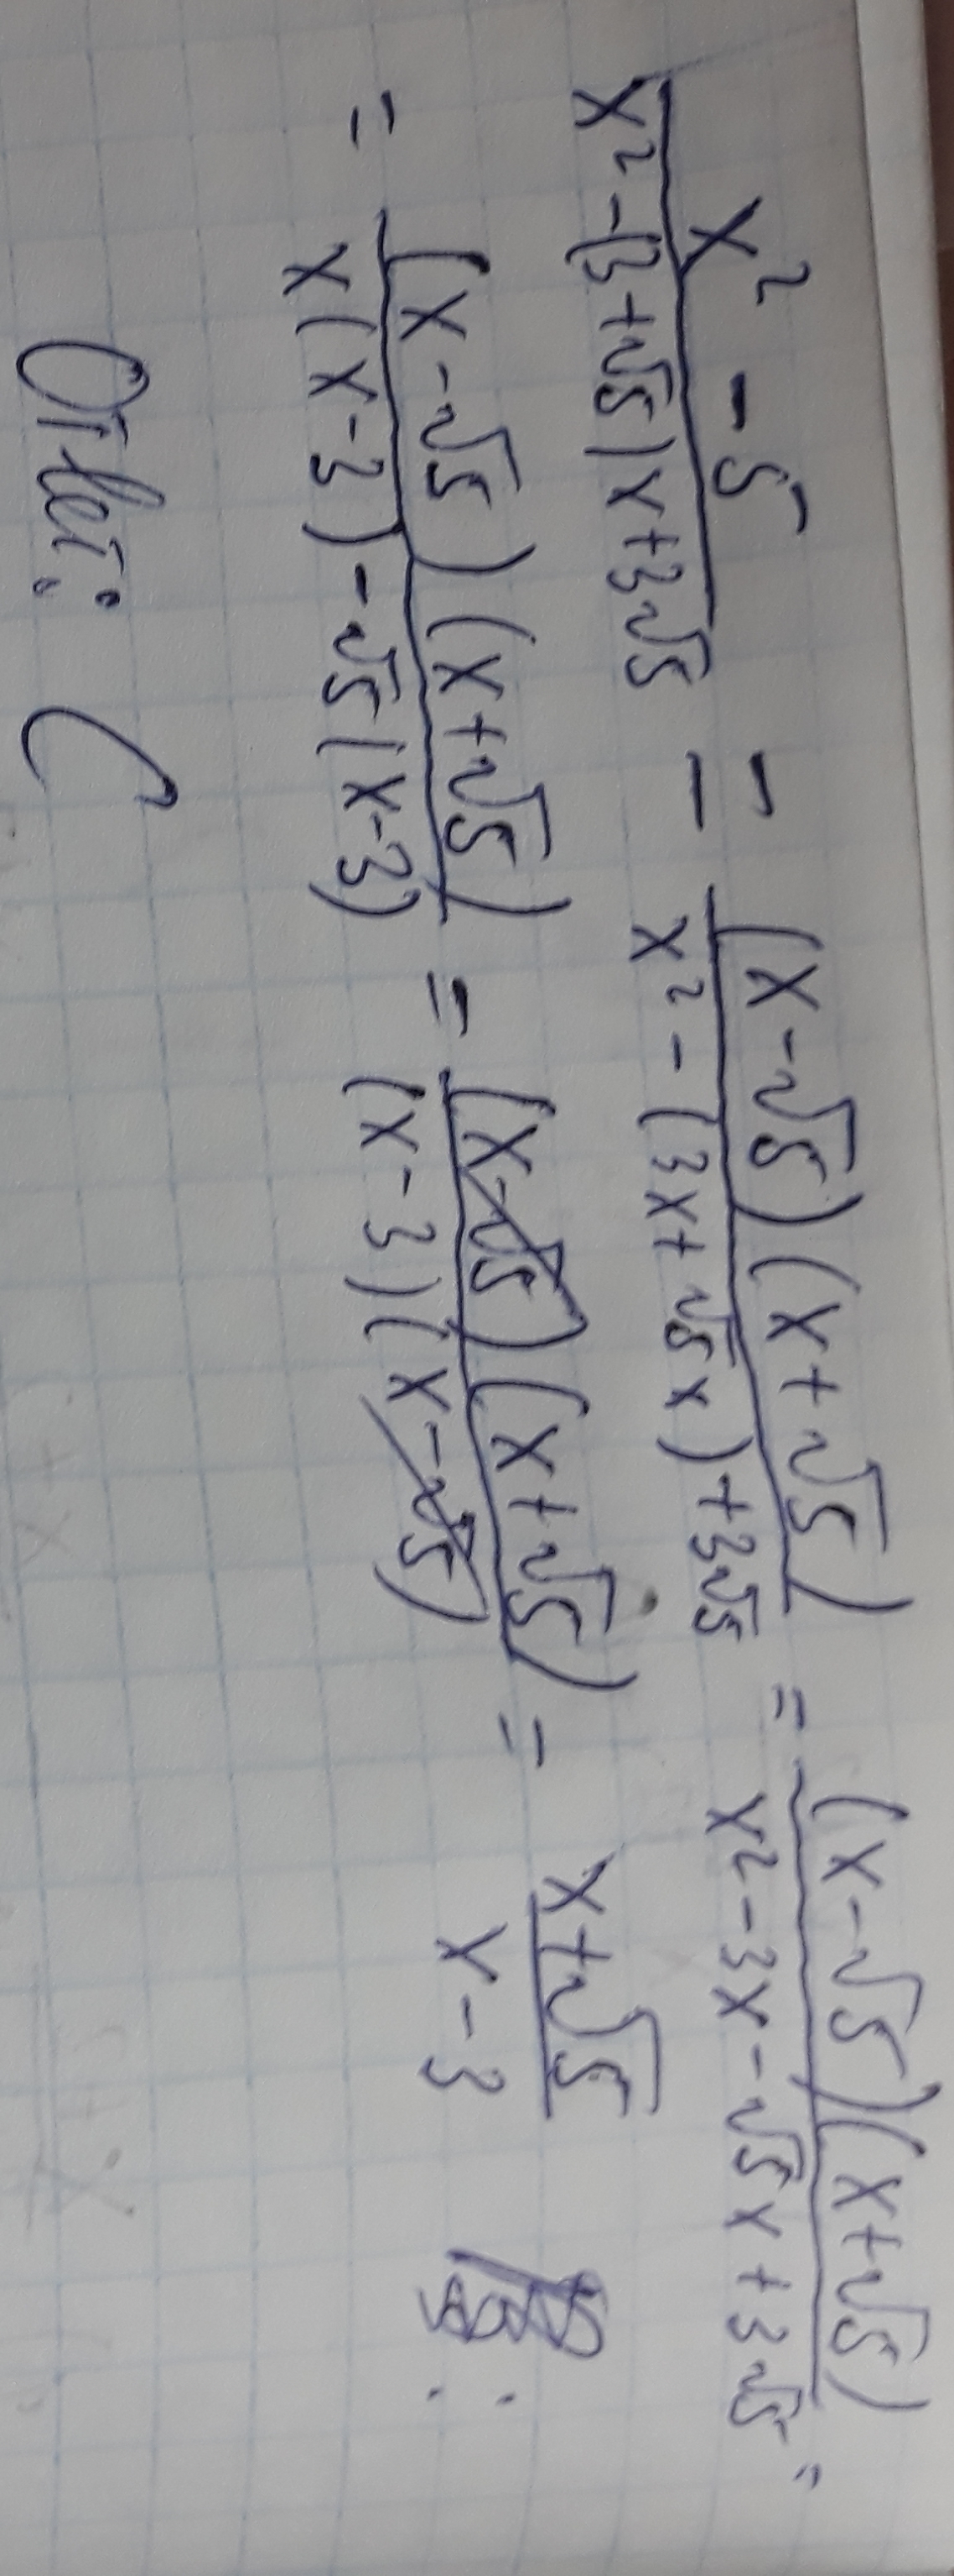 (x² - 5)/(x² - (3 + √5)x + 3√5) = ((x - √5)(x + √5))/(x² - (3x + √5x) + 3√5) = ((x - √5)(x + √5))/(x² - 3x - √5x + 3√5) =
= ((x - √5)(x + √5))/(x(x - 3) - √5(x - 3)) = ((x - √5)(x + √5))/((x - 3)(x - √5)) = (x + √5)/(x - 3)
Ответ: C